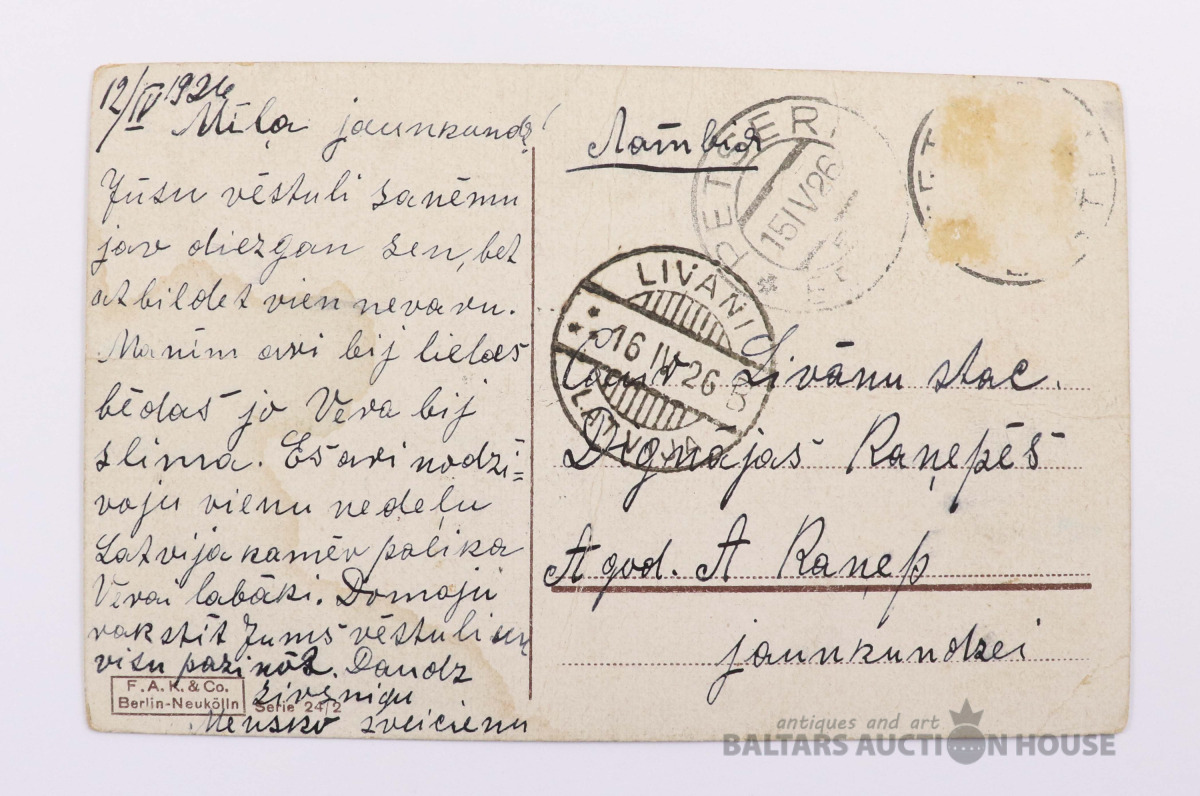 12/IV 1926
Mīļa jaunkundz!
Jūsu vēstuli saņēmu
jav diezgan sen, bet
atbildet vien nevaru.
Manim ari bij lielas
bēdas jo Vera bij
slima. Es ari nodzī=
voju vienu nedeļu
Latvija kamēr palika
Verai labāki. Domaju
rakstīt Jums vēstuli un
visu paziņot. Daudz
sirsnigu
sveicienu
F. A. K. & Co.
Berlin-Neukölln
Serie 24/2
PETSERI
15 IV 26
EESTI
LIVANI
16 IV 26
B
LATVIJA
Līvānu stac.
Dignājas Raņepēs
A god. A Raņep
jaunkundzei
antiques and art
BALTARS AUCTION HOUSE